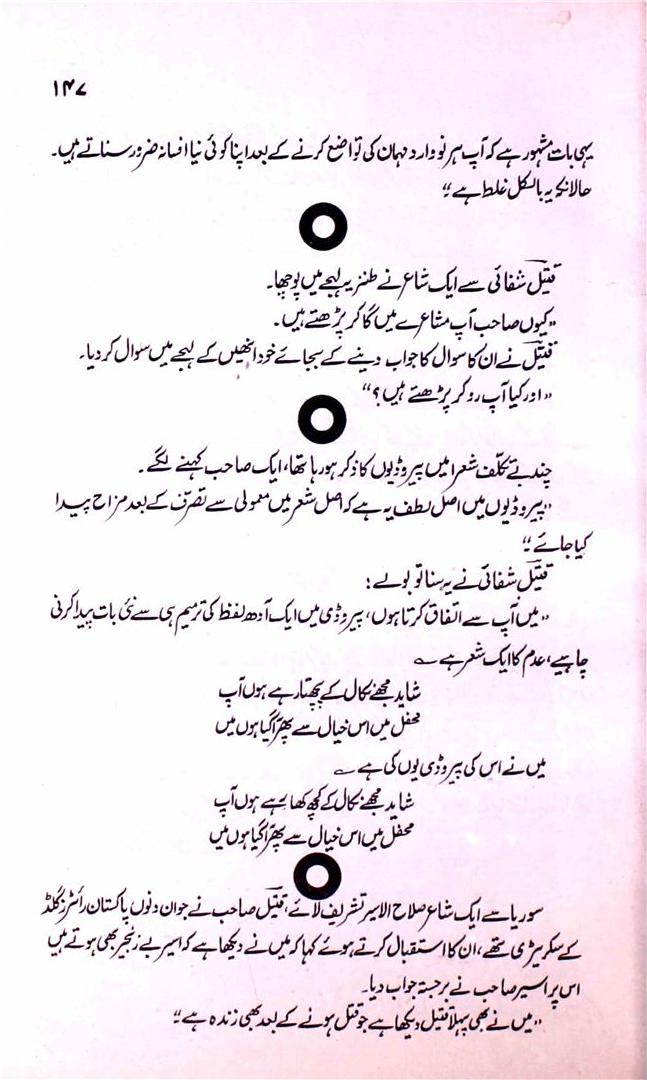 ۱۴۷
یہی بات مشہور ہے کہ آپ ہر نو وارد مہمان کی تواضع کرنے کے بعد اپنا کوئی نیا افسانہ ضرور سناتے ہیں۔
حالانکہ یہ بالکل غلط ہے“
قتیل شفائی سے ایک شاعر نے طنزیہ لہجے میں پوچھا۔
”کیوں صاحب آپ مشاعرے میں گا کر پڑھتے ہیں۔
قتیل نے ان کا سوال کا جواب دینے کے بجائے خود انھیں کے لہجے میں سوال کر دیا۔
”اور کیا آپ رو کر پڑھتے ہیں؟“
چند بے تکلف شعرا میں پیروڈیوں کا ذکر ہو رہا تھا، ایک صاحب کہنے لگے۔
”پیروڈیوں میں اصل لطف یہ ہے کہ اصل شعر میں معمولی سے تصرّف کے بعد مزاح پیدا
کیا جائے“
قتیل شفائی نے یہ سنا تو بولے؛
”میں آپ سے اتفاق کرتا ہوں، پیروڈی میں ایک آدھ لفظ کی ترمیم ہی سے نئی بات پیدا کرنی
چاہیے، عدم کا ایک شعر ہے ؎
شاید مجھے نکال کے پچھتا رہے ہوں آپ
محفل میں اس خیال سے پھر آ گیا ہوں میں
میں نے اس کی پیروڈی یوں کی ہے ؎
شاید مجھے نکال کے کچھ کھا رہے ہوں آپ
محفل میں اس خیال سے پھر آ گیا ہوں میں
سوریا سے ایک شاعر صلاح الاسیر تشریف لائے، قتیل صاحب نے جو ان دنوں پاکستان رائٹرز گلڈ
کے سکریٹری تھے، ان کا استقبال کرتے ہوئے کہا کہ میں نے دیکھا ہے کہ اسیر بے زنجیر بھی ہوتے ہیں
اس پر اسیر صاحب نے برجستہ جواب دیا۔
”میں نے بھی پہلا قتیل دیکھا ہے جو قتل ہونے کے بعد بھی زندہ ہے“